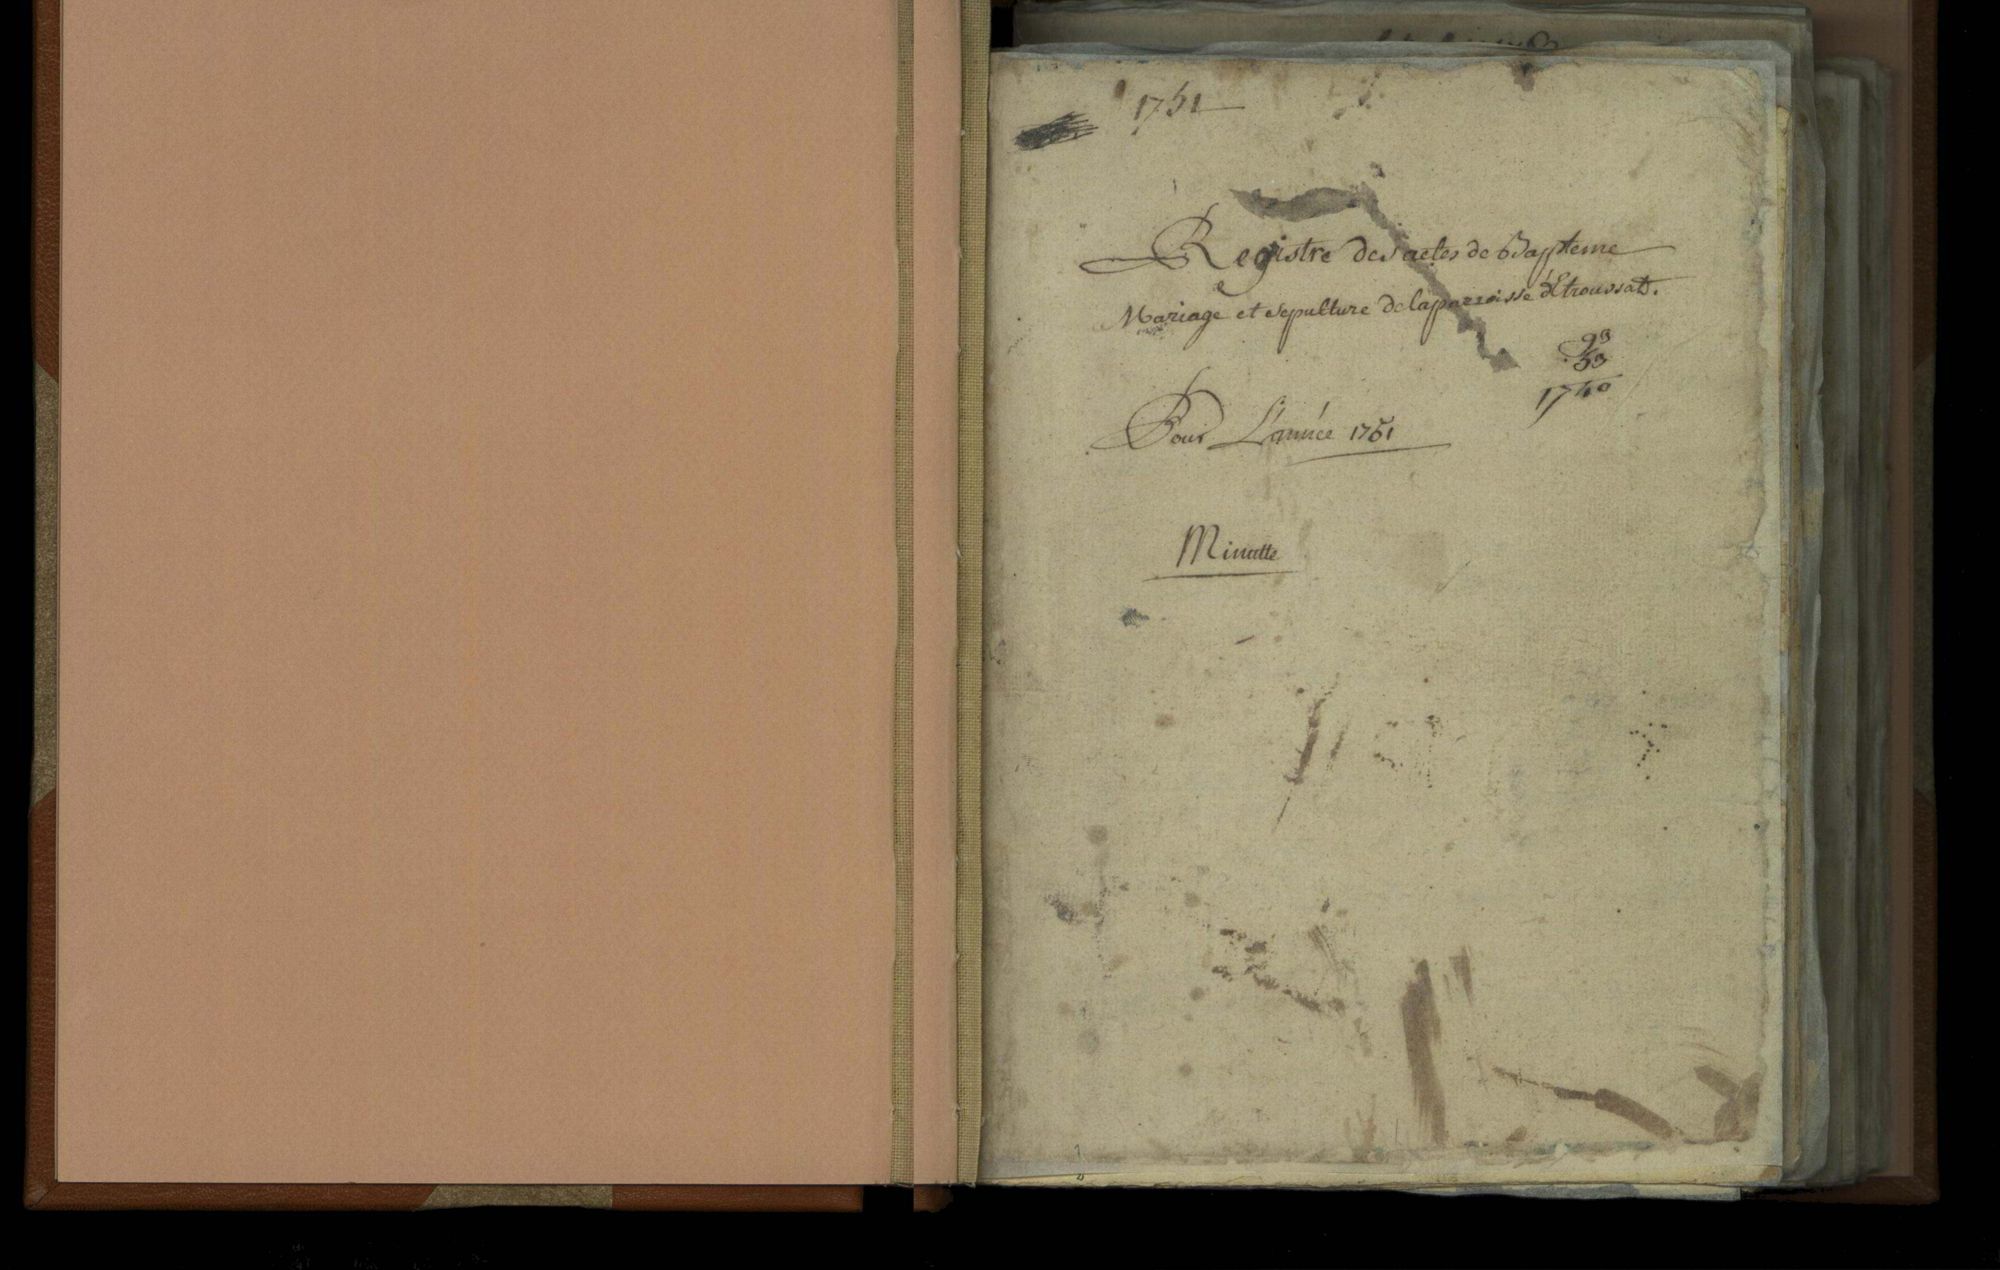 1751
Registre des actes de Bapteme
Mariage et sepulture de la parroisse d'Etroussat.
93
53
1740
Pour L'année 1751
Minutte